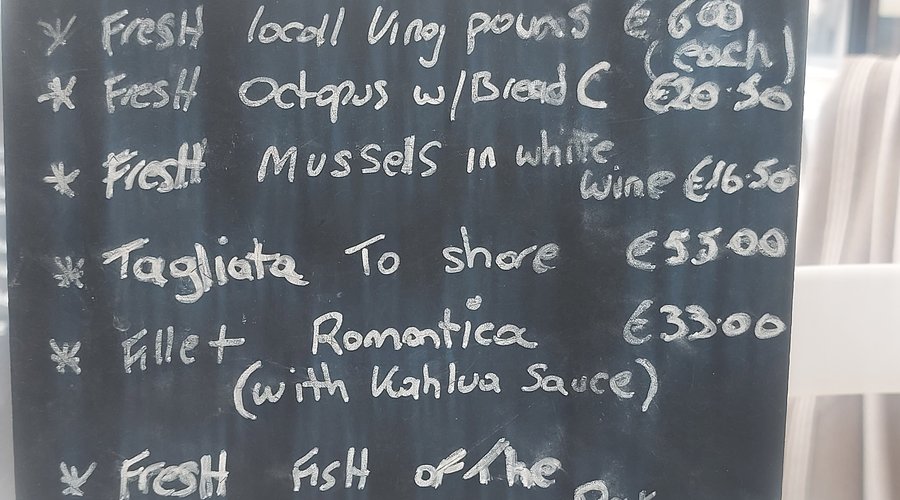 * FresH locall King pouns € 600
(each)
* FresH Octopus w/Bread C €20.50
* FresH Mussels in white
wine €16.50
* Tagliata To share €55.00
* Fillet Romantica €33.00
(with Kahlua Sauce)
* FresH FisH of The
Day